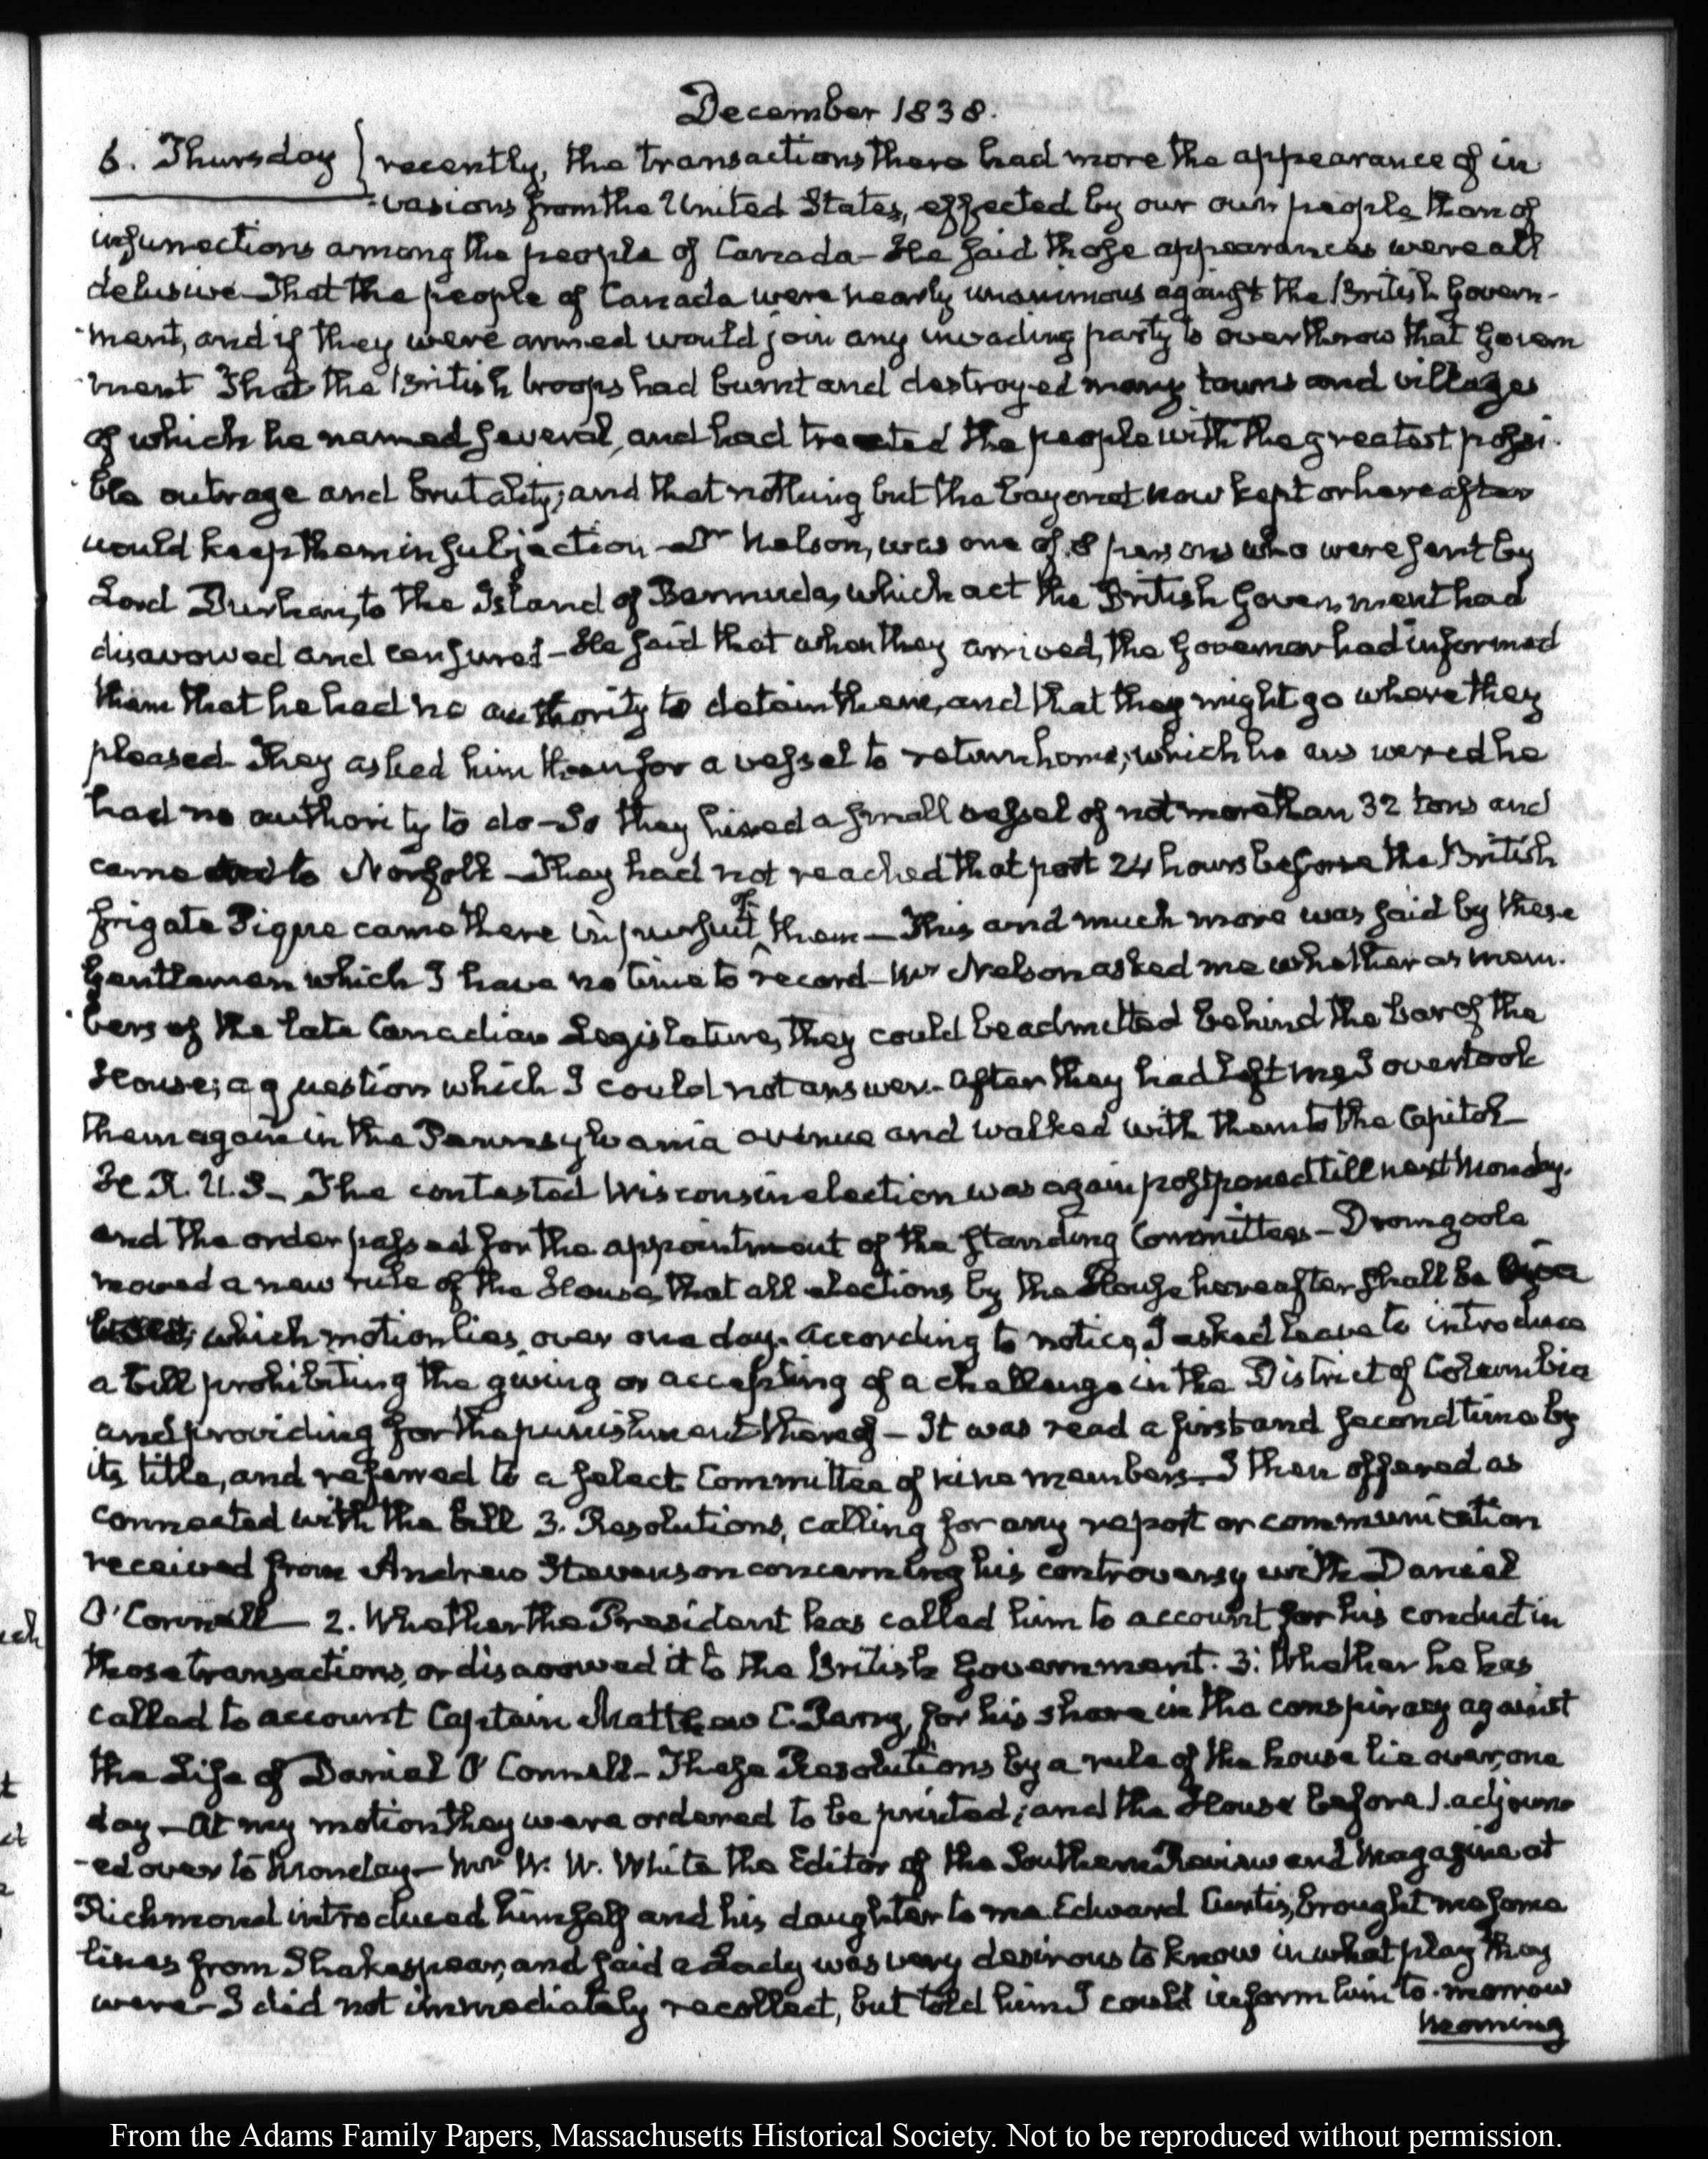 December 1838.
6. Thursday } recently, the transactions there had more the appearance of in
-vasions from the United States, effected by our own people than of
insurrections among the people of Canada - He said those appearances were all
delusive - That the people of Canada were nearly unanimous against the British Govern-
-ment, and if they were armed would join any invading party to overthrow that Govern
-ment That the British troops had burnt and destroyed many towns and villages
of which he named several, and had treated the people with the greatest possi-
-ble outrage and brutality; and that nothing but the bayonet now kept or hereafter
would keep them in subjection - Dr Nelson, was one of 8 persons who were sent by
Lord Durham, to the Island of Bermuda, which act the British Government had
disavowed and censured - He said that when they arrived, the Governor had informed
them that he had no authority to detain them, and that they might go where they
pleased - They asked him then for a vessel to return home; which he answered he
had no authority to do - So they hired a small vessel of not more than 32 tons and
came to Norfolk - They had not reached that port 24 hours before the British
frigate Pique came there in pursuit of them - This and much more was said by these
Gentlemen which I have no time to record - Mr Nelson asked me whether as mem-
-bers of the late Canadian Legislature, they could be admitted behind the bar of the
House; a question which I could not answer. After they had left me I overtook
them again in the Pennsylvania avenue and walked with them to the Capitol -
H. R. U. S - The contested Wisconsin election was again postponed till next Monday.
and the order passed for the appointment of the standing Committees - Dromgoole
moved a new rule of the House, that all elections by the House hereafter shall be viva
which motion lies over one day. According to notice, I asked leave to introduce
a bill prohibiting the giving or accepting of a challenge in the District of Columbia
and providing for the punishment thereof - It was read a first and second time by
its title, and referred to a select Committee of nine members - I then offered as
connected with the bill 3. Resolutions, calling for any report or communication
received from Andrew Stevenson concerning his controversy with Daniel
O'Connell - 2. Whether the President has called him to account for his conduct in
those transactions, or disavowed it to the British Government. 3. Whether he has
called to account Captain Matthew C. Perry, for his share in the conspiracy against
the Life of Daniel O'Connell - These Resolutions by a rule of the house lie over, one
day - At my motion they were ordered to be printed; and the House before 1. adjourn
-ed over to Monday - Mr W. W. White the Editor of the Southern Review and Magazine at
Richmond introduced himself and his daughter to me. Edward Curtis, brought me some
lines from Shakespear, and said a Lady was very desirous to know in what play they
were - I did not immediately recollect, but told him I could inform him to-morrow
morning
From the Adams Family Papers, Massachusetts Historical Society. Not to be reproduced without permission.